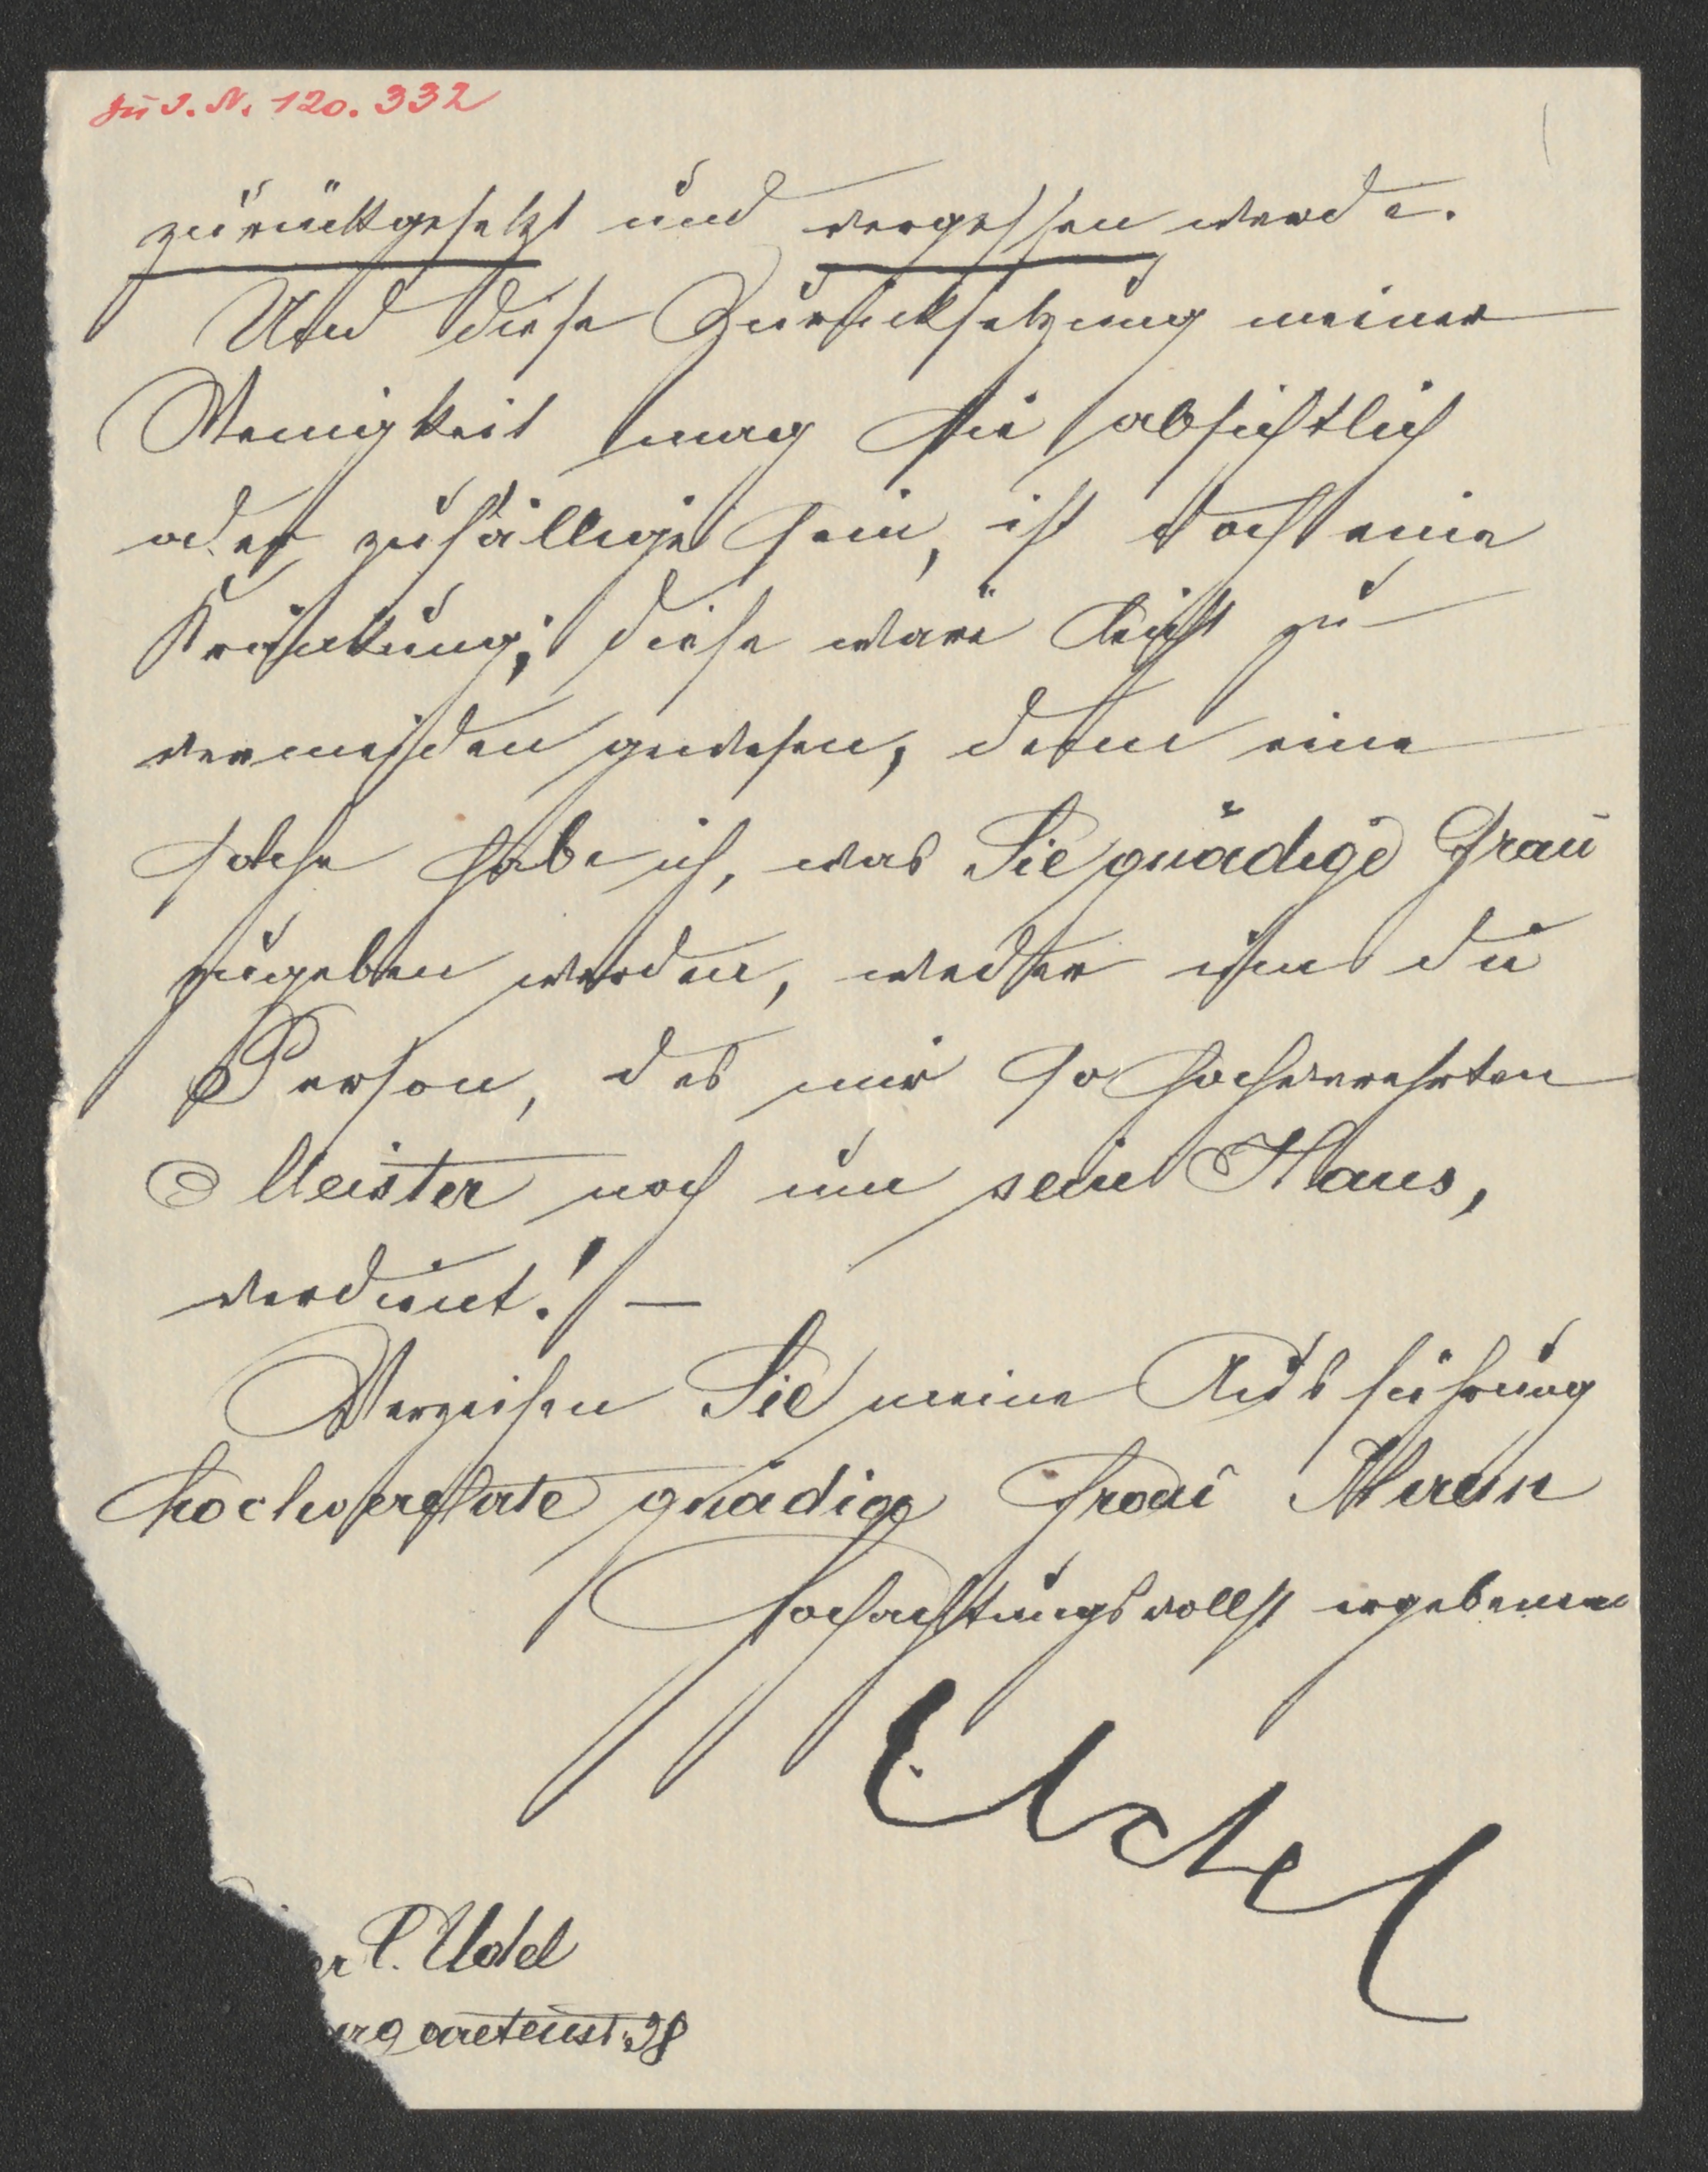 zu I. N. 120.332
zurückgesetzt und vergessen werde.
Und diese Zurücksetzung meiner
Wenigkeit mag sie absichtlich
oder zufällige sein, ist doch eine
Kränkung; diese wäre leicht zu
vermeiden gewesen, denn eine
solche habe ich, was Sie gnädige Frau
zugeben werden, weder um die
Person, des mir so hochverehrten
Meister noch um sein Haus,
verdient! —
Verzeihen Sie meine Ausführung
hochverehrte gnädige Frau
Hochachtungsvollst ergebener
Udel
er C. Udel
argaretenst. 28